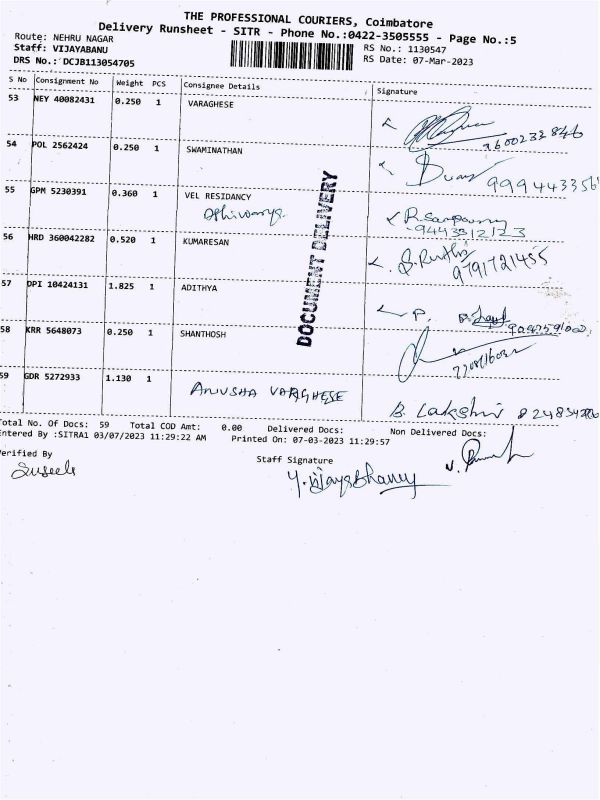 THE PROFESSIONAL COURIERS, Coimbatore
Delivery Runsheet - SITR - Phone No.:0422-3505555 - Page No.:5
Route: NEHRU NAGAR
Staff: VIJAYABANU
DRS No.: DCJB113054705
RS No.: 1130547
RS Date: 07-Mar-2023
S No Consignment No Weight PCS Consignee Details Signature
53 NEY 40082431 0.250 1 VARAGHESE
54 POL 2562424 0.250 1 SWAMINATHAN
55 GPM 5230391 0.360 1 VEL RESIDANCY
9443312123
56 HRD 360042282 0.520 1 KUMARESAN
9791721455
57 DPI 10424131 1.825 1 ADITHYA
P.
58 KRR 5648073 0.250 1 SHANTHOSH
59 GDR 5272933 1.130 1 ANUSHA VARGHESE
B. Lakshmi
DOCUMENT DELIVERY
Total No. Of Docs: 59 Total COD Amt: 0.00 Delivered Docs: Non Delivered Docs:
Entered By :SITRA1 03/07/2023 11:29:22 AM Printed On: 07-03-2023 11:29:57
Verified By
Staff Signature